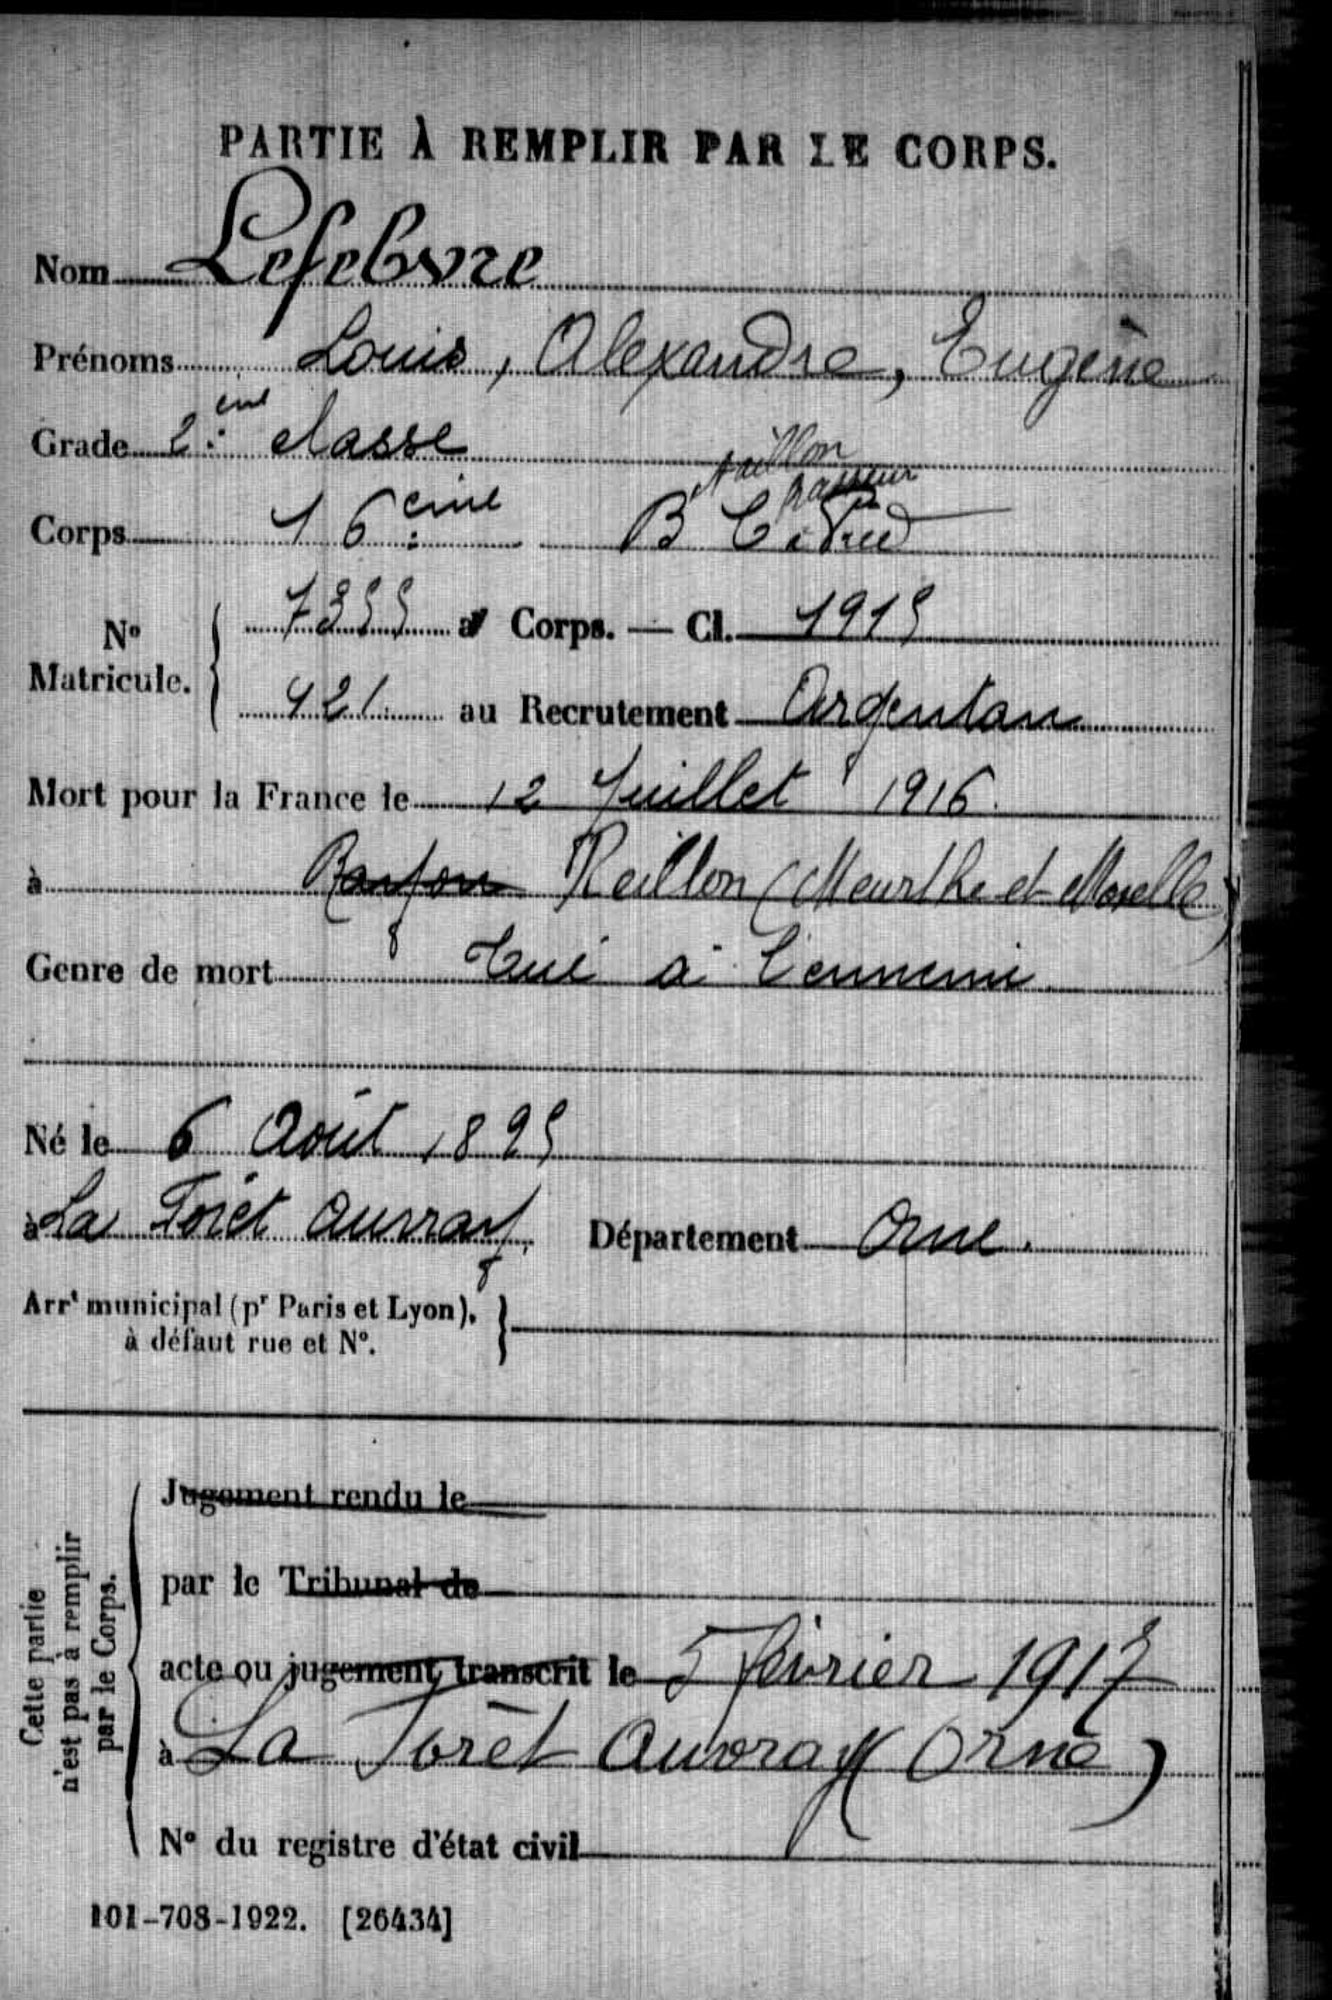 PARTIE À REMPLIR PAR LE CORPS.
Nom Lefebvre
Prénoms Louis, Alexandre, Eugène
Grade 2ème classe
Corps 16ème B C à Pied
N° Matricule. 7355 au Corps. — Cl. 1915
421 au Recrutement Argentan
Mort pour la France le 12 Juillet 1916.
à Reillon (Meurthe et Moselle)
Genre de mort Tué à l'ennemi
Né le 6 Août 1895
à La Forêt Auvray. Département Orne.
Arrt municipal (pr Paris et Lyon),
à défaut rue et N°.
Cette partie
n'est pas à remplir
par le Corps.
Jugement rendu le
par le Tribunal de
acte ou jugement transcrit le 5 février 1917
à La Forêt Auvray (Orne)
N° du registre d'état civil
101-708-1922. [26434]